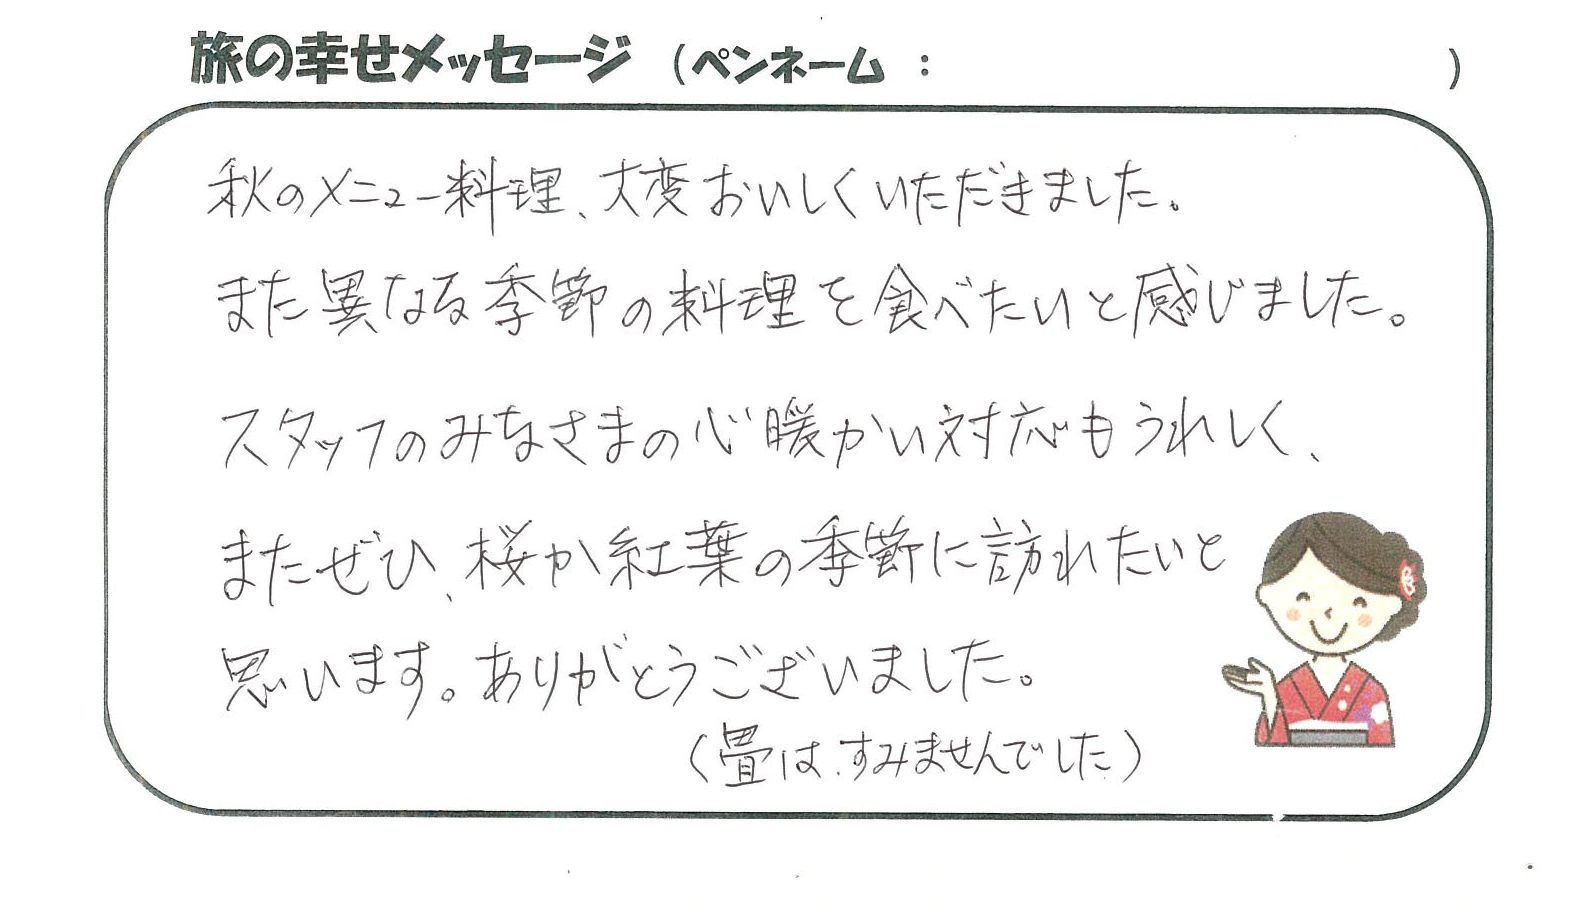 旅の幸せメッセージ （ペンネーム ： ）
秋のメニュー料理、大変おいしくいただきました。
また異なる季節の料理を食べたいと感じました。
スタッフのみなさまの心暖かい対応もうれしく、
またぜひ、桜か紅葉の季節に訪れたいと
思います。ありがとうございました。
（畳は、すみませんでした）